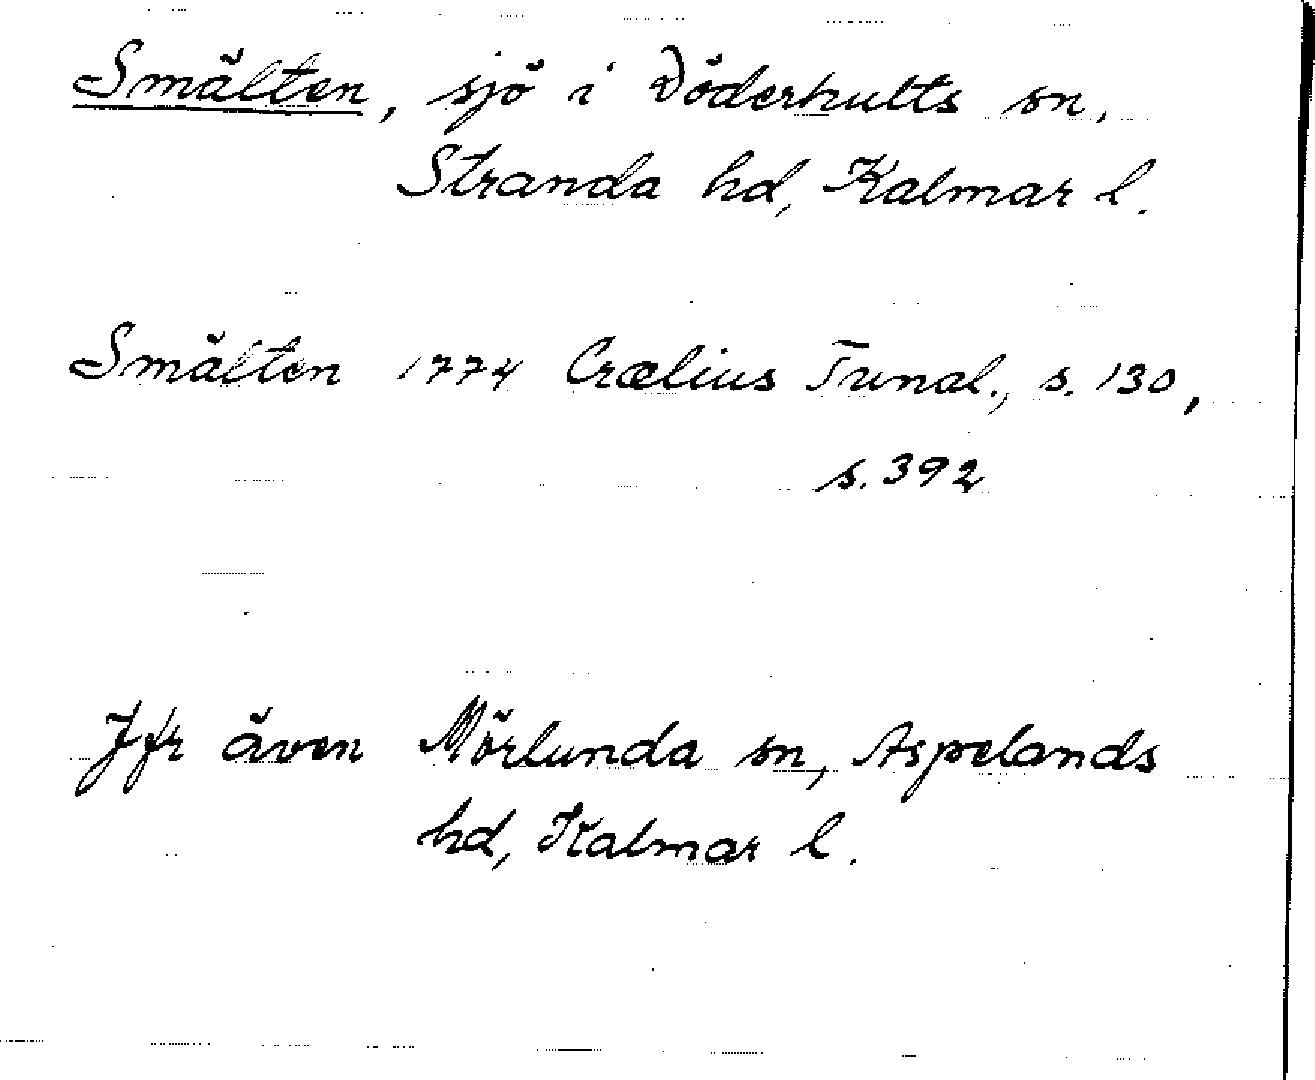 Smälten, sjö i Döderhults sn,
Stranda hd, Kalmar l.
Smälten 1774 Crælius Tunal., s. 130,
s. 392
Jfr även Mörlunda sn, Aspelands
hd, Kalmar l.